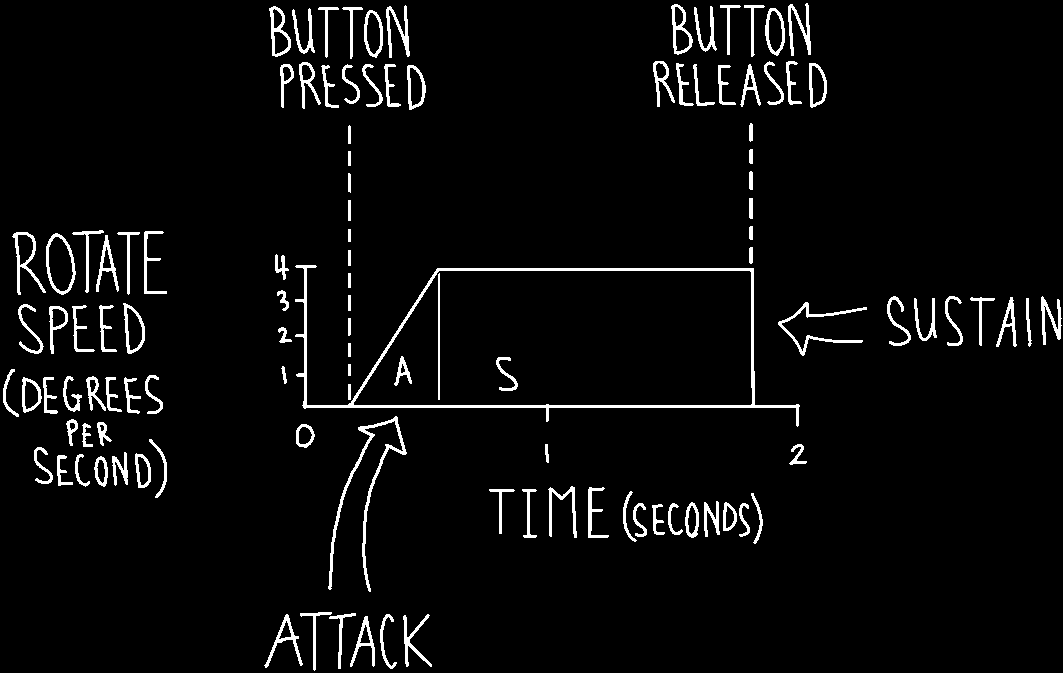 BUTTON
PRESSED
BUTTON
RELEASED
ROTATE
SPEED
(DEGREES
PER
SECOND)
4
3
2
1
A
S
SUSTAIN
0
1
2
TIME (SECONDS)
ATTACK